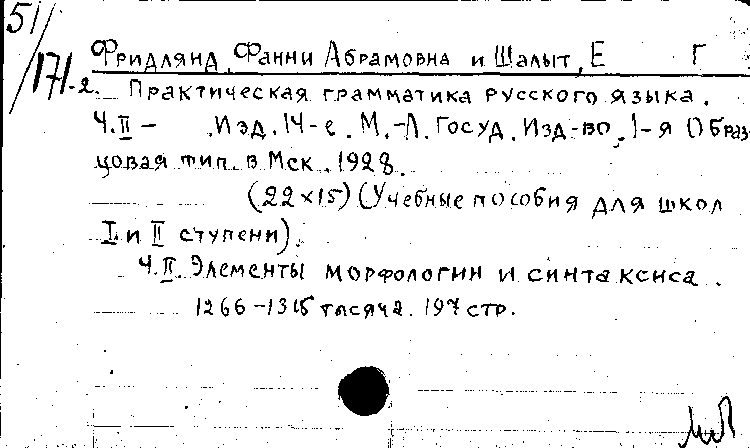 51/
171-2.
Фридлянд, Фанни Абрамовна и Шалыт, Е Г
Практическая грамматика русского языка.
Ч.II – Изд. 14-е. М.-Л. Госуд. Изд-во, 1-я Образ
цовая тип. в Мск. 1928.
(22×15) (Учебные пособия для школ
I и II ступени).
Ч.II. Элементы морфологии и синтаксиса.
1266–1315 тысяча. 197 стр.